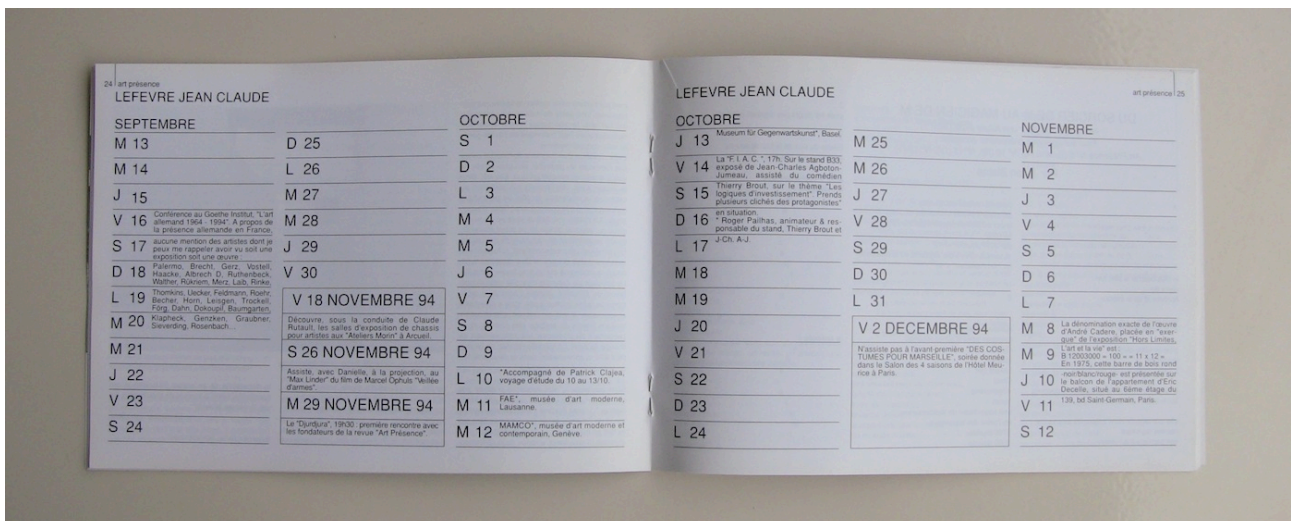 24 art présence
LEFEVRE JEAN CLAUDE
SEPTEMBRE
M 13
M 14
J 15
V 16 Conférence au Goethe Institut, "L'art
allemand 1964 - 1994". A propos de
la présence allemande en France,
S 17 aucune mention des artistes dont je
peux me rappeler avoir vu soit une
exposition soit une œuvre :
D 18 Palermo, Brecht, Gerz, Vostell,
Haacke, Albrech D, Ruthenbeck,
Walther, Rükriem, Merz, Laib, Rinke,
L 19 Thomkins, Uecker, Feldmann, Roehr,
Becher, Horn, Leisgen, Trockell,
Förg, Dahn, Dokoupil, Baumgarten,
M 20 Klapheck, Genzken, Graubner,
Sieverding, Rosenbach...
M 21
J 22
V 23
S 24
D 25
L 26
M 27
M 28
J 29
V 30
V 18 NOVEMBRE 94
Découvre, sous la conduite de Claude
Rutault, les salles d'exposition de chassis
pour artistes aux "Ateliers Morin" à Arcueil.
S 26 NOVEMBRE 94
Assiste, avec Danielle, à la projection, au
"Max Linder" du film de Marcel Ophuls "Veillée
d'armes".
M 29 NOVEMBRE 94
Le "Djurdjura", 19h30 : première rencontre avec
les fondateurs de la revue "Art Présence".
OCTOBRE
S 1
D 2
L 3
M 4
M 5
J 6
V 7
S 8
D 9
L 10 "Accompagné de Patrick Clajea,
voyage d'étude du 10 au 13/10.
M 11 FAE", musée d'art moderne,
Lausanne.
M 12 MAMCO", musée d'art moderne et
contemporain, Genève.
LEFEVRE JEAN CLAUDE
art présence 25
OCTOBRE
J 13 Museum für Gegenwartskunst", Basel.
V 14 La "F. I. A. C. ", 17h. Sur le stand B33,
exposé de Jean-Charles Agboton-
Jumeau, assisté du comédien
S 15 Thierry Brout, sur le thème "Les
logiques d'investissement". Prends
plusieurs clichés des protagonistes"
D 16 en situation.
" Roger Pailhas, animateur & res-
ponsable du stand, Thierry Brout et
L 17 J-Ch. A-J.
M 18
M 19
J 20
V 21
S 22
D 23
L 24
M 25
M 26
J 27
V 28
S 29
D 30
L 31
V 2 DECEMBRE 94
N'assiste pas à l'avant-première "DES COS-
TUMES POUR MARSEILLE", soirée donnée
dans le Salon des 4 saisons de l'Hôtel Meu-
rice à Paris.
NOVEMBRE
M 1
M 2
J 3
V 4
S 5
D 6
L 7
M 8 La dénomination exacte de l'œuvre
d'André Cadere, placée en "exer-
gue" de l'exposition "Hors Limites,
M 9 L'art et la vie" est :
B 12003000 = 100 = = 11 x 12 =
En 1975, cette barre de bois rond
J 10 -noir/blanc/rouge- est présentée sur
le balcon de l'appartement d'Eric
Decelle, situé au 6ème étage du
V 11 139, bd Saint-Germain, Paris.
S 12